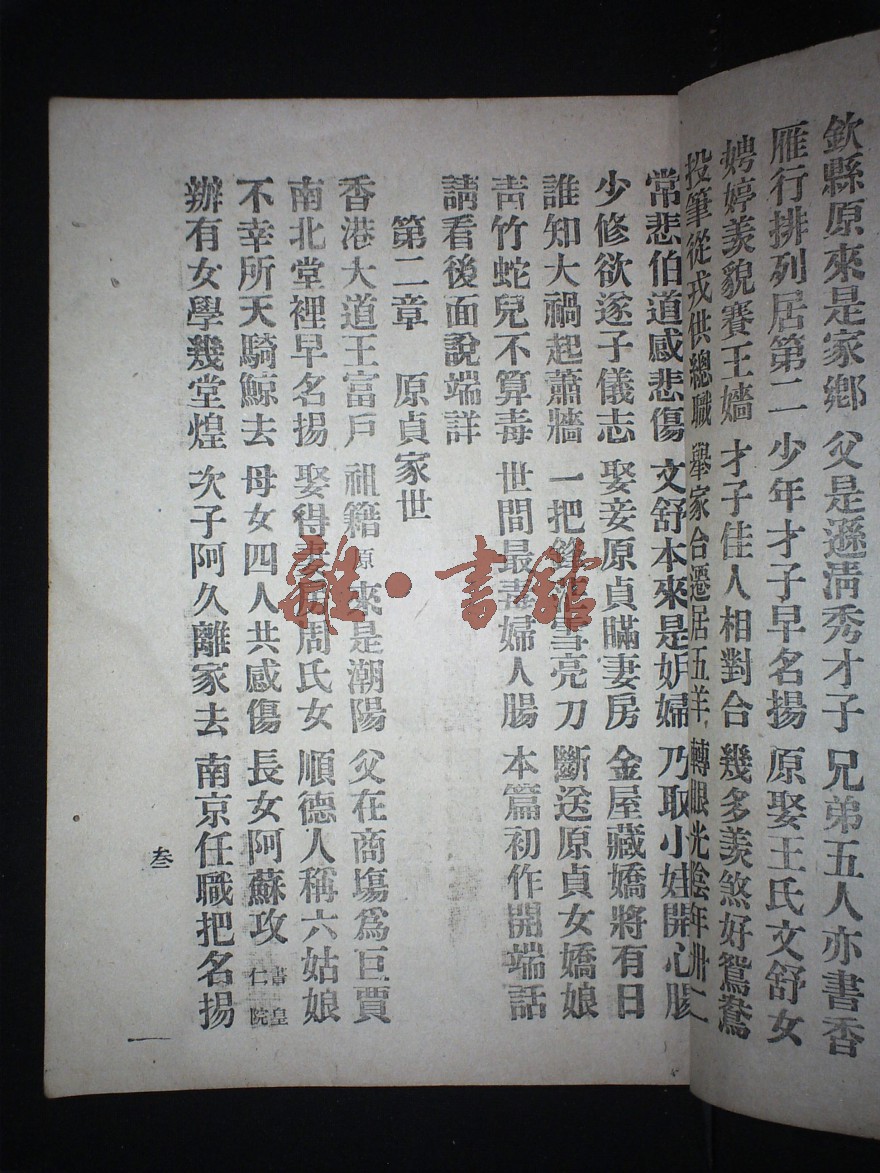 欽縣原來是家鄉 父是遜清秀才子 兄弟五人亦書香
雁行排列居第二 少年才子早名揚 原娶王氏文舒女
娉婷美貌賽王嬙 才子佳人相對合 幾多羨煞好鴛鴦
投筆從戎供總職 舉家合遷居五羊 轉眼光陰年卅二
常悲伯道感悲傷 文舒本來是妒婦 乃取小娃開心腸
少修欲遂子儀志 娶妾原貞瞞妻房 金屋藏嬌將有日
誰知大禍起蕭牆 一把 亮刀 斷送原貞女嬌娘
靑竹蛇兒不算毒 世間最毒婦人腸 本篇初作開端話
請看後面說端詳
第二章 原貞家世
香港大道王富戶 祖籍原來是潮陽 父在商塲爲巨賈
南北堂裡早名揚 娶得 周氏女 順德人稱六姑娘
不幸所天騎鯨去 母女四人共感傷 長女阿蘇攻書皇仁院
辦有女學幾堂煌 次子阿久離家去 南京任職把名揚
叁
一
雜·書館